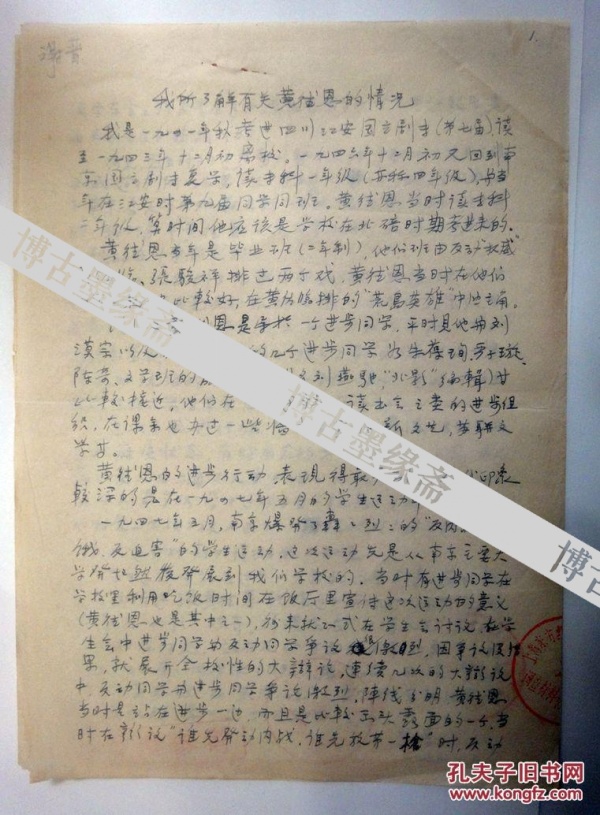 谢晋
1.
我所了解有关黄祖恩的情况
我是一九四一年秋考进四川江安国立剧专(第七届)读
至一九四三年十二月初离校。一九四六年十二月初又回到南
京国立剧专复学,读本科一年级
年在江安时第九届同学同班。黄祖恩当时读本科
二年级,算时间他应该是学校在北碚时期考进来的。
黄祖恩当年是毕业班(二年制),他们班由反动权威
张骏祥排过两个戏,黄祖恩当时在他们
比较好,在黄佐临排的"荒岛英雄"中当主角。
恩是属于一个进步同学,平时见他与刘
的几个进步同学
陈奇、文学班的 "北影"编辑)廿
比较接近,他们在 读书会之类的进步组
织,在课余也办过一些墙 新文艺,苏联文
学等。
黄祖恩的进步行动,表现得最 印象
较深的是在一九四七年五月的学生运动
一九四七年五月,南京爆发了轰轰烈烈的"反内
饿、反迫害"的学生运动,这次运动先是从南京主要大
学发起然后发展到我们学校的。当时有进步同学在
学校里利用吃饭时间在饭厅里宣传这次运动的意义
(黄祖恩也是其中之一),后来就正式在学生会讨论,在学
生会中进步同学与反动同学争论很激烈,因争论没结
果,就展开全校性的大辩论,连续几次的大辩论
中,反动同学与进步同学争论激烈,阵线分明,黄祖恩
当时是站在进步一边,而且是比较出头露面的一个,当
时在辩论"谁先发动内战,谁先放第一枪"时,反动
博古墨缘斋
博古墨缘斋
博古墨缘斋
博古
孔夫子旧书网
www.kongfz.com